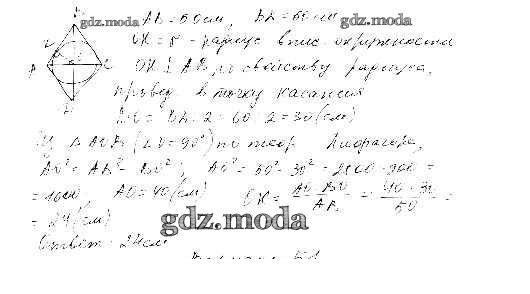 gdz.moda
AB = 50 см, BD = 60 см gdz.moda
OK = r - радиус впис. окружности
OK ⊥ AB, по свойству радиуса,
провед. в точку касания
BO = BD : 2 = 60 : 2 = 30 (см)
Из △ AOB (∠O = 90°) по теор. Пифагора,
AO² = AB² - BO², AO² = 50² - 30² = 2500 - 900 =
= 1600, AO = 40 (см) OK = AO · BO / AB = 40 · 30 / 50 =
= 24 (см)
gdz.moda
Ответ: 24 см